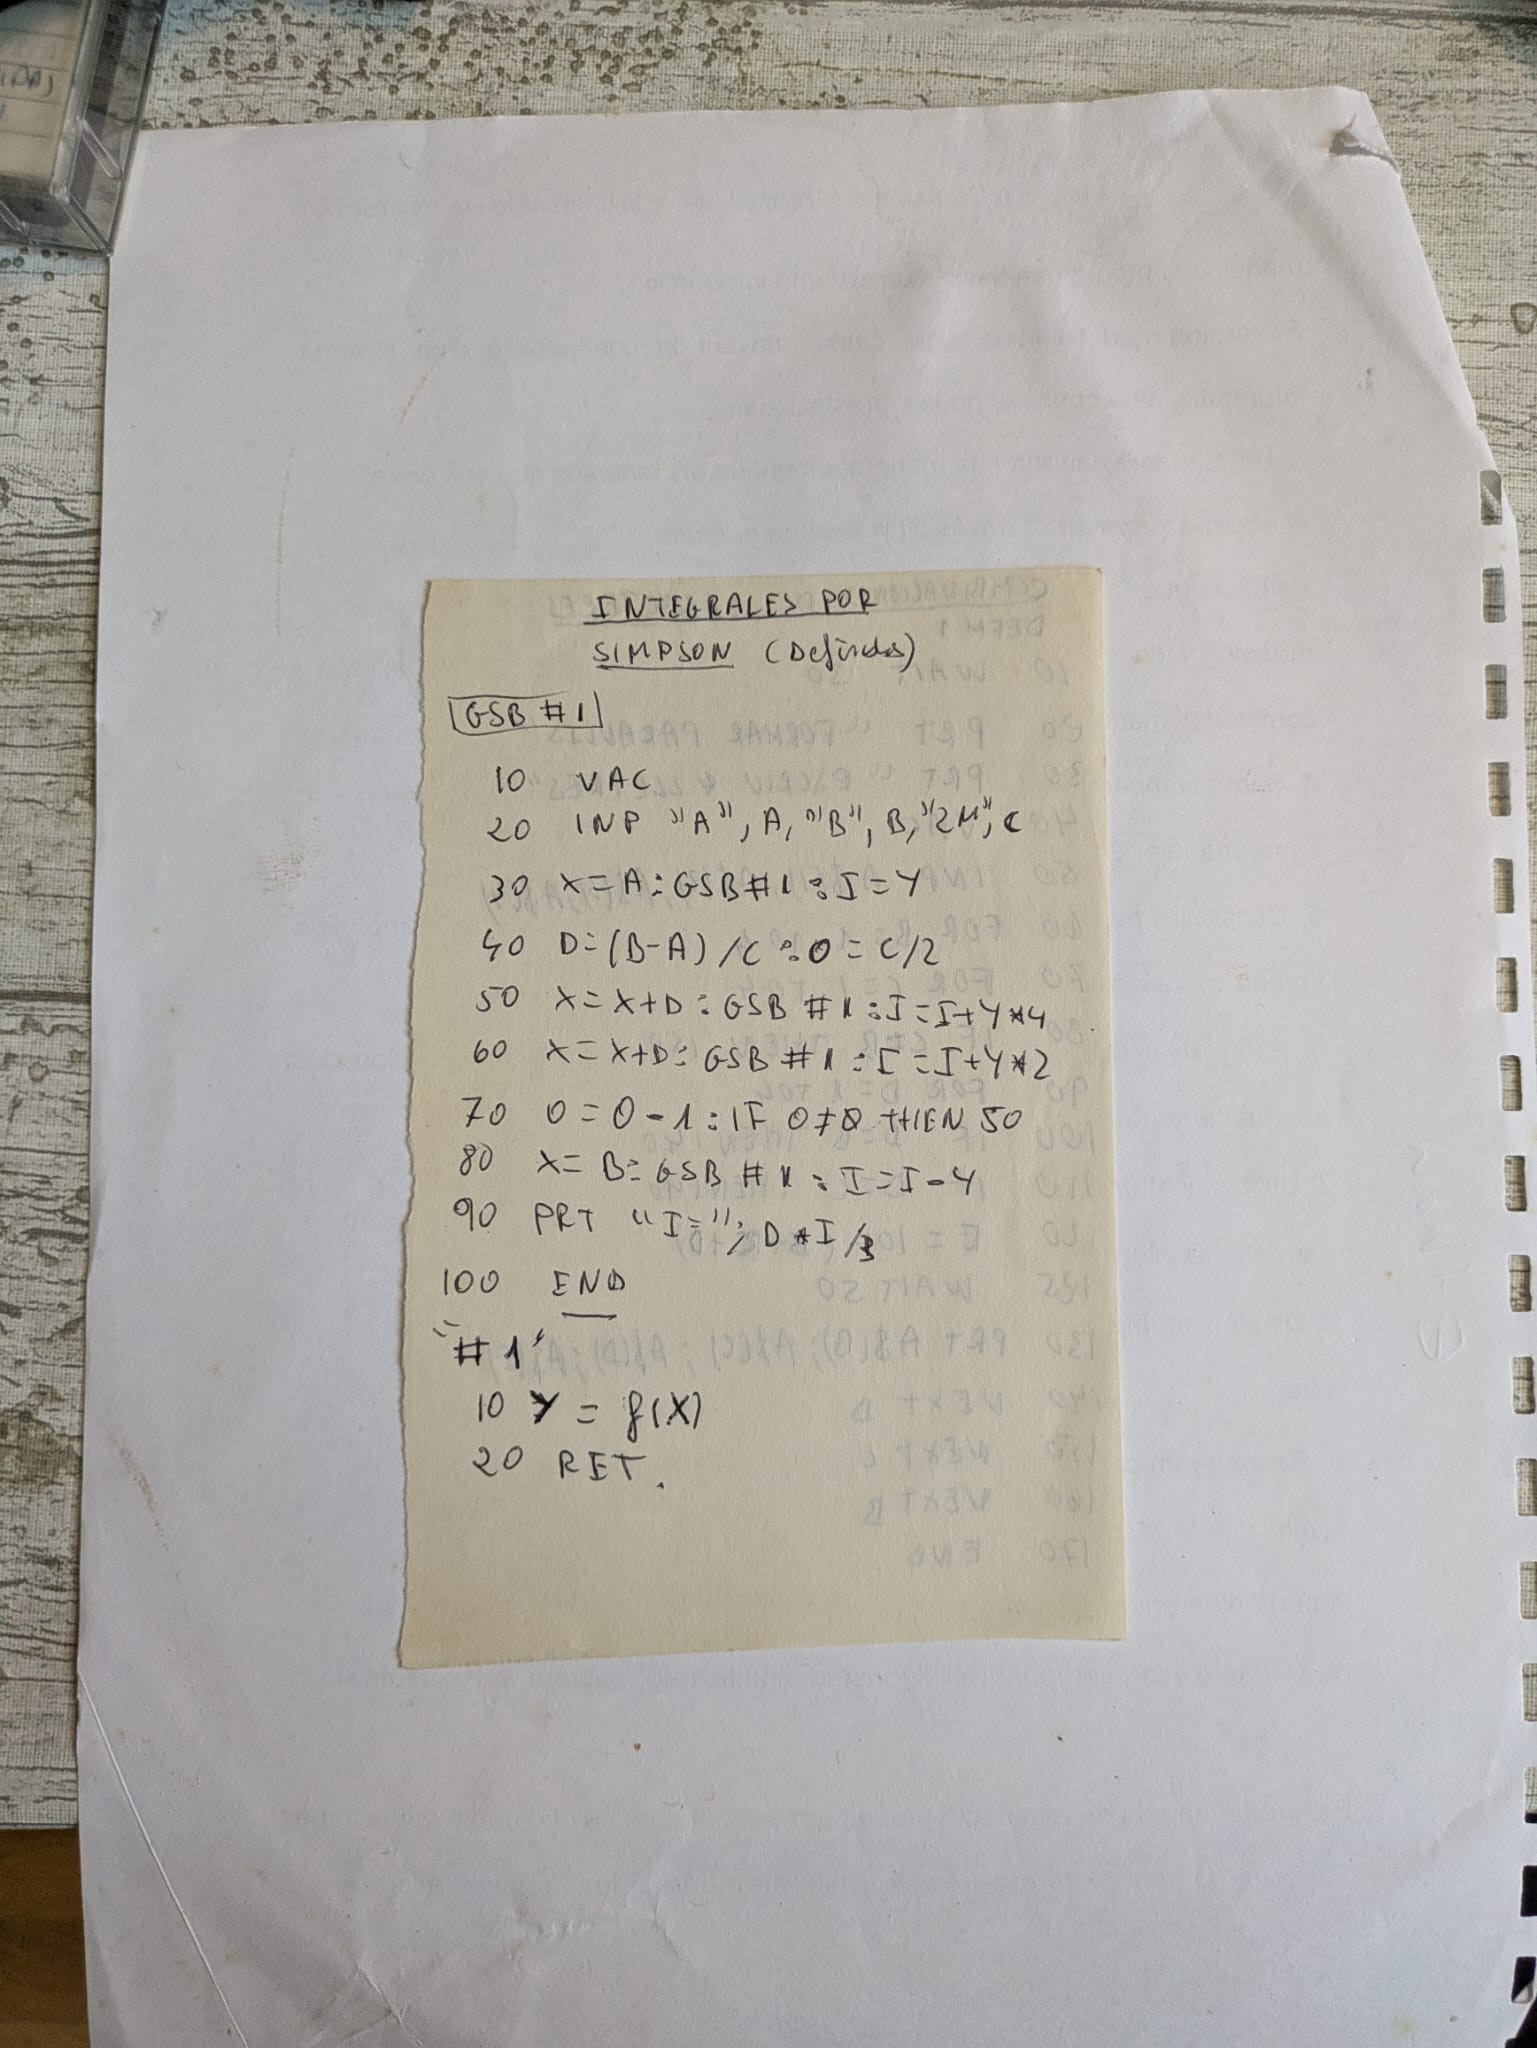 INTEGRALES POR
SIMPSON (Definidas)
GSB #1
10 VAC
20 INP "A", A, "B", B, "2M", C
30 X=A:GSB#1:I=Y
40 D=(B-A)/C:O=C/2
50 X=X+D:GSB #1:I=I+Y*4
60 X=X+D:GSB #1:I=I+Y*2
70 O=O-1:IF O≠0 THEN 50
80 X=B:GSB #1:I=I-Y
90 PRT "I=";D*I/3
100 END
"#1"
10 Y = f(X)
20 RET.